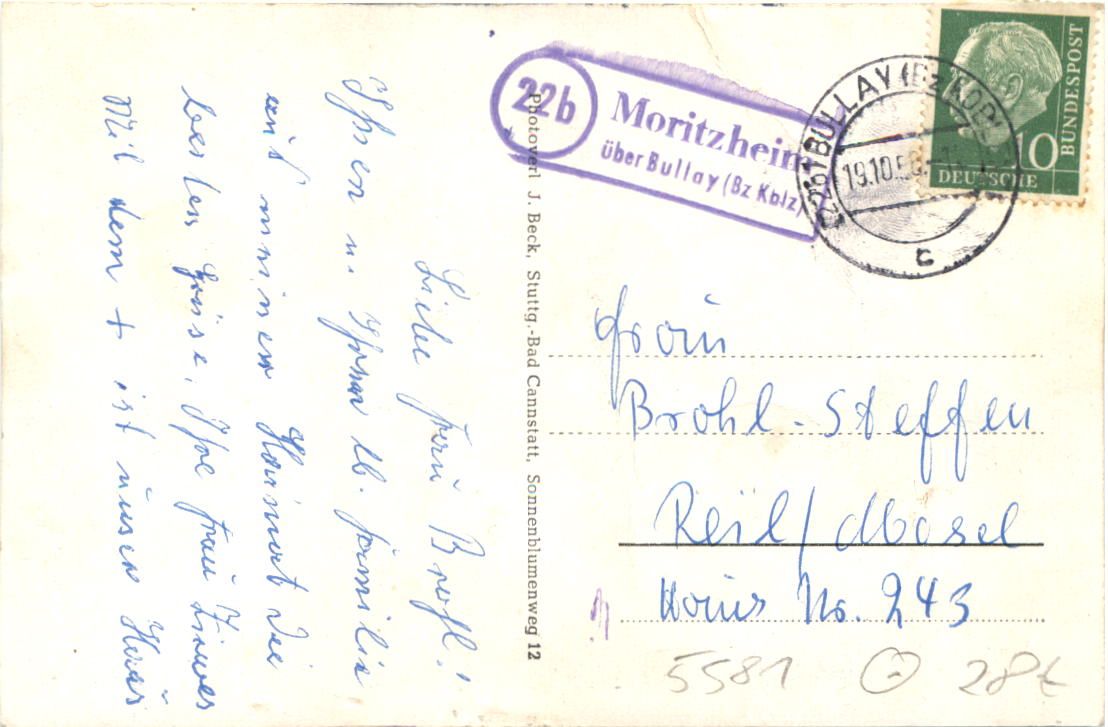 22b
Moritzheim
über Bullay (Bz Kblz)
(22b) BULLAY (Bz KOBL)
19.10.56
c
10
DEUTSCHE
BUNDESPOST
Photoverl J. Beck, Stuttg.-Bad Cannstatt, Sonnenblumenweg 12
Liebe Frau Brohl!
Ihnen u. Ihrer lb. Familie
aus meiner Heimat die
besten Grüsse, Ihre Frau
Mit dem + ist unser Haus
Frau
Brohl-Steffen
Reil/Mosel
Haus No. 243
5581
28€